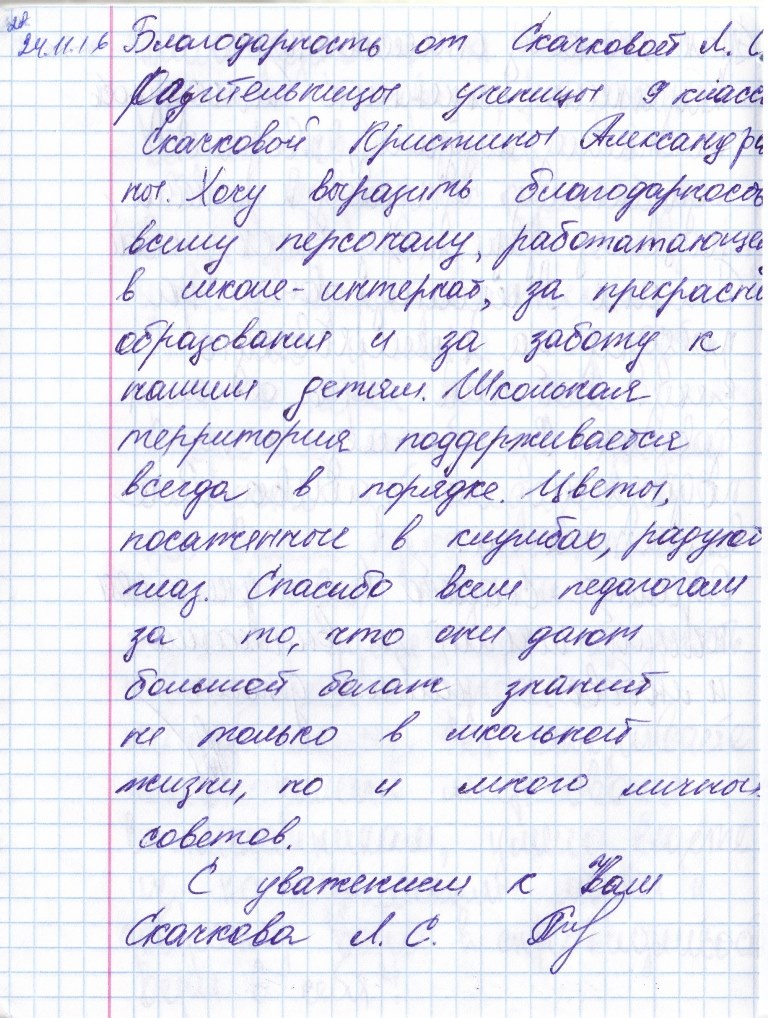 24.11.16 Благодарность от Скачковой Л. С.
Радительницы ученицы 9 класс
Скачковой Кристины Александров
ны. Хочу выразить благодарность
всему персоналу, работатающе
в школе-интернат, за прекрасн
образования и за заботу к
нашим детям. Школьная
территория поддерживается
всегда в порядке. Цветы,
посаженные в клумбах, радуют
глаз. Спасибо всем педагогам
за то, что они дают
большой багаж знаний
не только в школьной
жизни, но и много личных
советов.
С уважением к Вам
Скачкова Л. С.